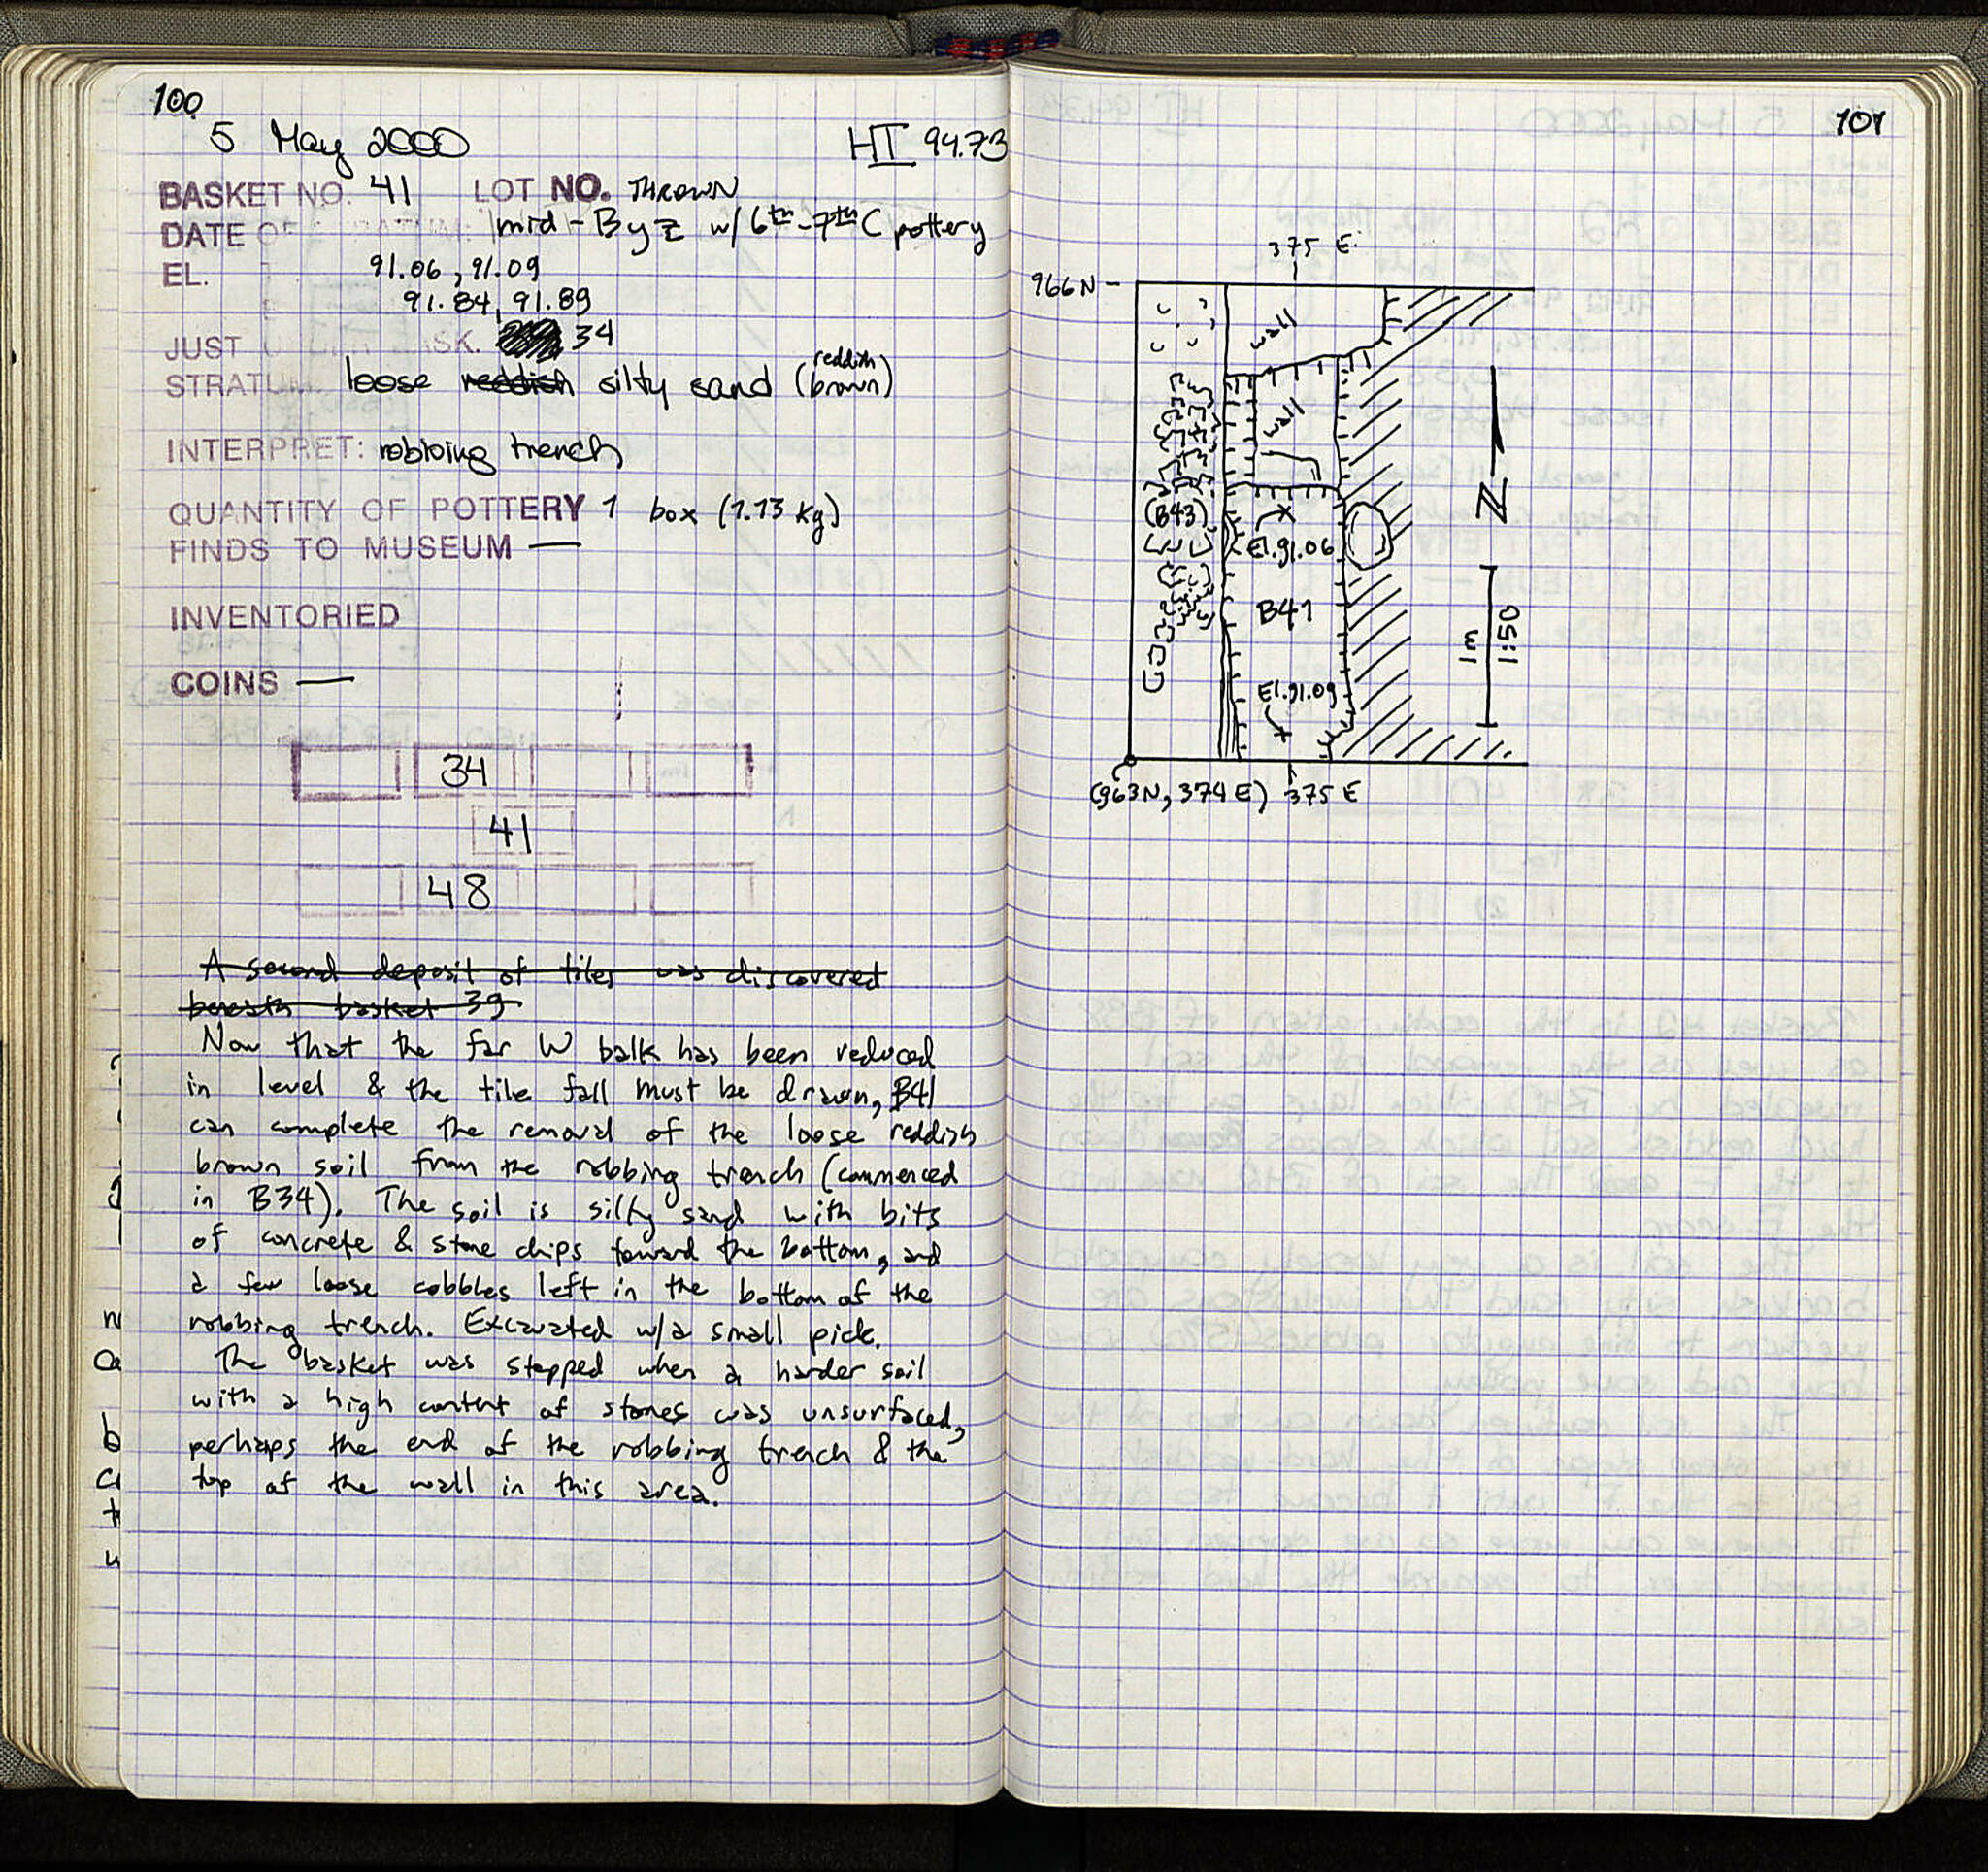 100
5 May 2000 HI 94.73
BASKET NO. 41 LOT NO. THROWN
DATE OF STRATUM: mid-Byz w/ 6th-7th C pottery
EL. 91.06, 91.09
91.84, 91.89
JUST UNDER BASK. 34
STRATUM: loose reddish silty sand (reddish brown)
INTERPRET: robbing trench
QUANTITY OF POTTERY 1 box (1.13 kg)
FINDS TO MUSEUM —
INVENTORIED
COINS —
34
41
48
A second deposit of tiles was discovered
beneath basket 39
Now that the far W balk has been reduced
in level & the tile fall must be drawn, B41
can complete the removal of the loose reddish
brown soil from the robbing trench (commenced
in B34). The soil is silty sand with bits
of concrete & stone chips toward the bottom, and
a few loose cobbles left in the bottom of the
robbing trench. Excavated w/a small pick.
The basket was stopped when a harder soil
with a high content of stones was unsurfaced,
perhaps the end of the robbing trench & the
top of the wall in this area.
101
375 E
966N
wall
wall
(B43)
El.91.06
N
B41
1m
1:50
El.91.09
(963N, 374E) 375 E